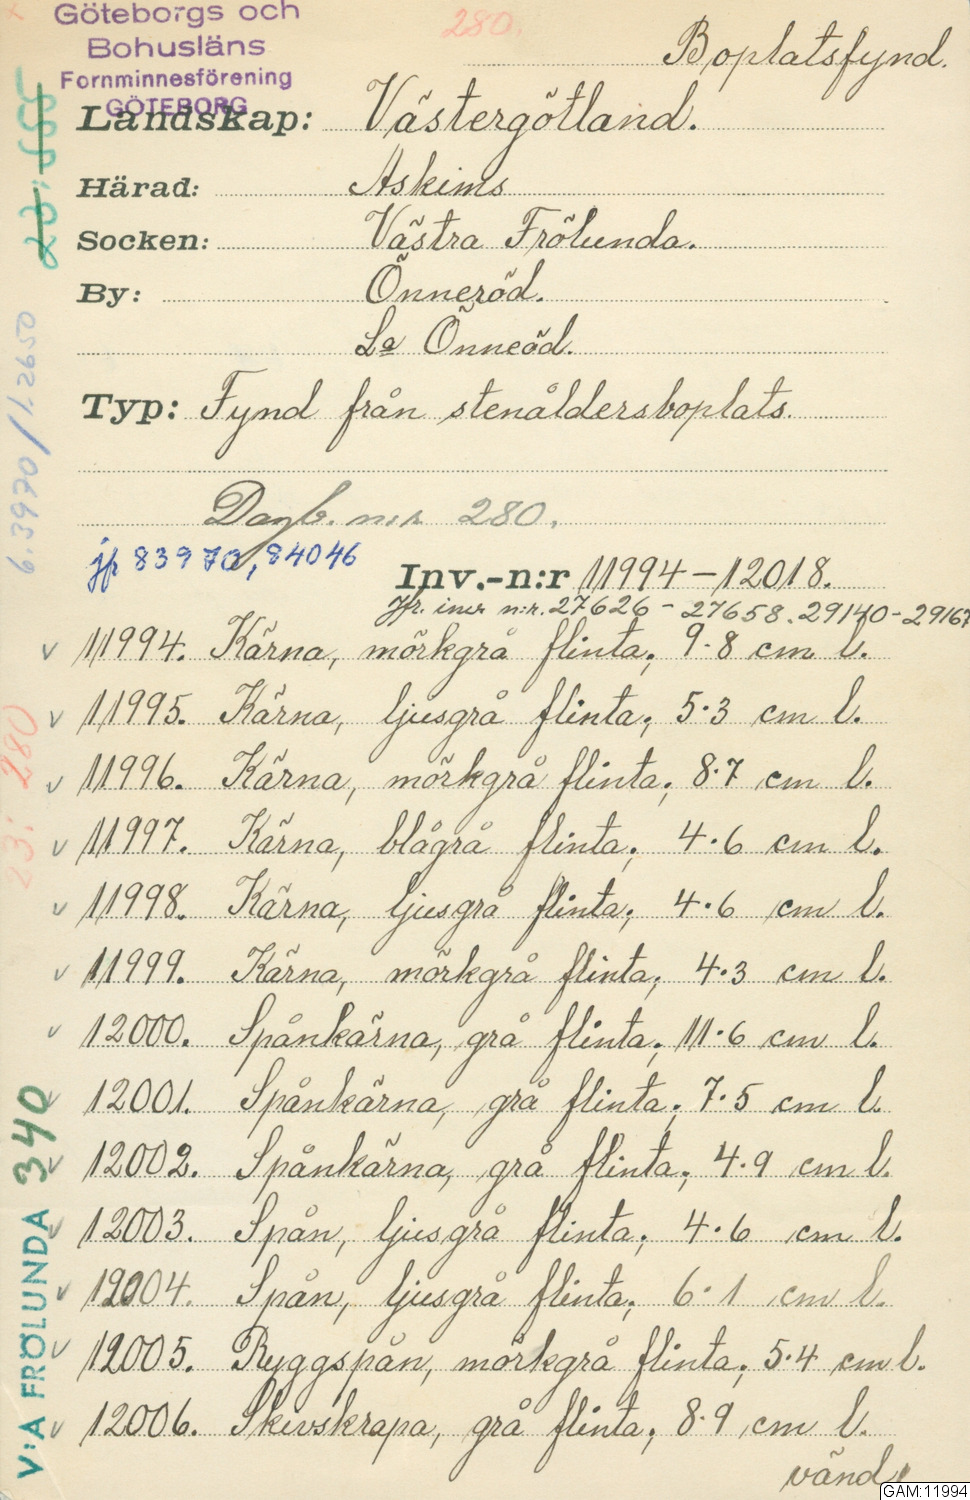 Göteborgs och
Bohusläns
Fornminnesförening
GÖTEBORG
280.
Boplatsfynd.
Landskap: Västergötland.
Härad: Askims
Socken: Västra Frölunda.
By: Önneröd.
La Önneöd.
Typ: Fynd från stenåldersboplats.
Dagb. n:r 280.
jfr 83970, 84046
Inv.-n:r 11994-12018.
Jfr. inv n:r. 27626-27658. 29140-29167
v 11994. Kärna, mörkgrå flinta; 9.8 cm l.
v 11995. Kärna, ljusgrå flinta; 5.3 cm l.
v 11996. Kärna, mörkgrå flinta; 8.7 cm l.
v 11997. Kärna, blågrå flinta; 4.6 cm l.
v 11998. Kärna, ljusgrå flinta; 4.6 cm l.
v 11999. Kärna, mörkgrå flinta; 4.3 cm l.
v 12000. Spånkärna, grå flinta; 11.6 cm l.
v 12001. Spånkärna, grå flinta; 7.5 cm l.
v 12002. Spånkärna, grå flinta; 4.9 cm l.
v 12003. Spån, ljusgrå flinta; 4.6 cm l.
v 12004. Spån, ljusgrå flinta; 6.1 cm l.
v 12005. Ryggspån, mörkgrå flinta; 5.4 cm l.
v 12006. Skivskrapa, grå flinta; 8.9 cm l.
vänd!
6.3970/1.2650
23: 280
V:A FRÖLUNDA 340
GAM:11994